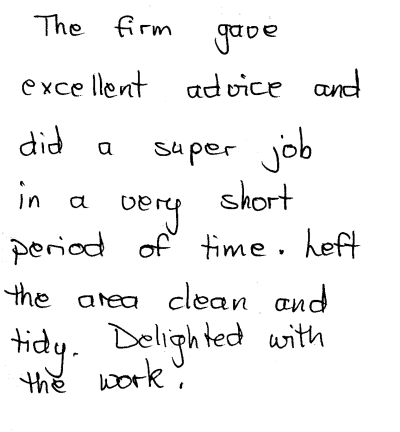 The firm gave
excellent advice and
did a super job
in a very short
period of time. Left
the area clean and
tidy. Delighted with
the work.